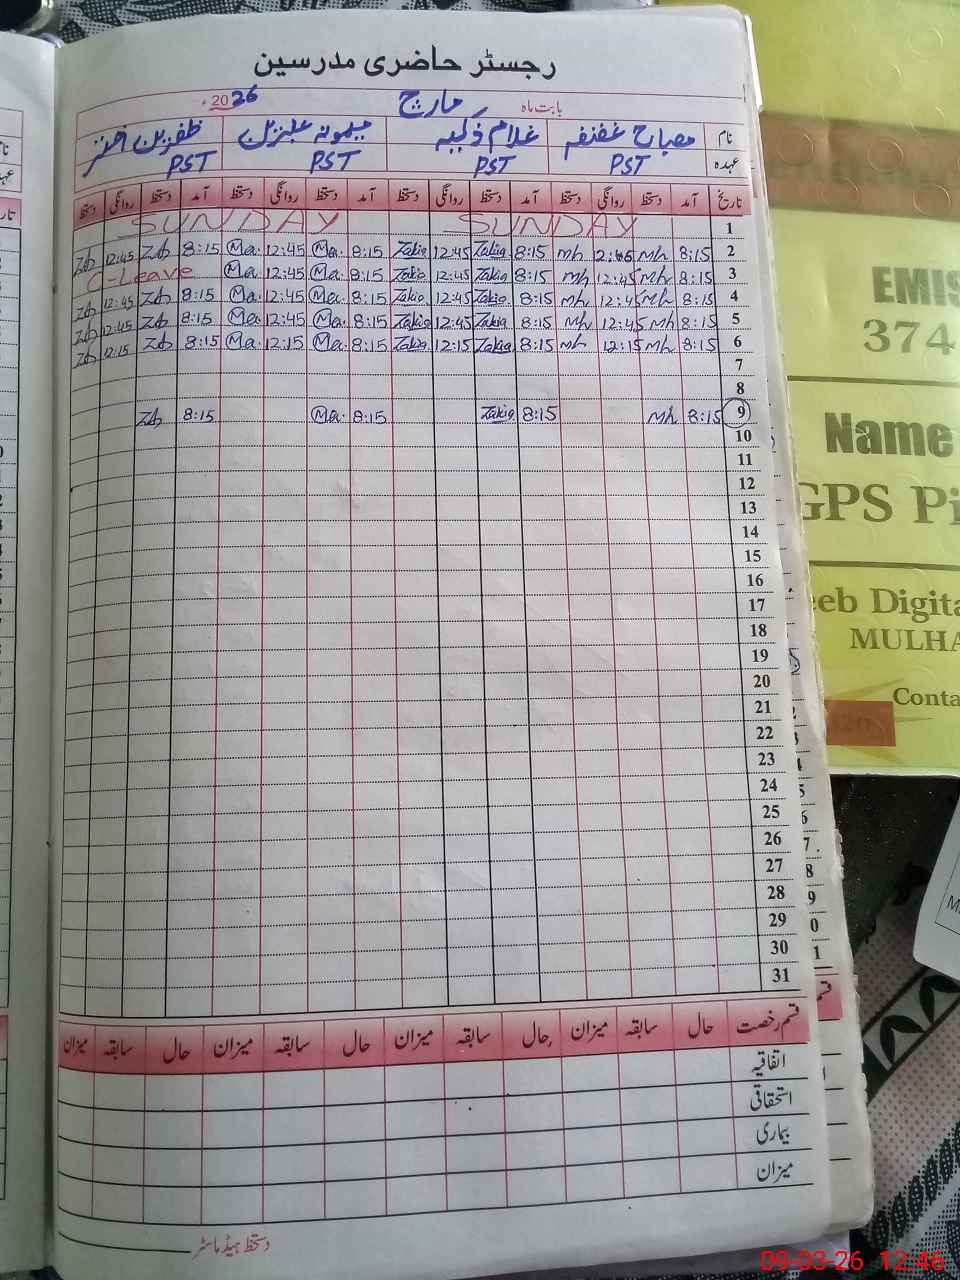 رجسٹر حاضری مدرسین
بابت ماہ مارچ 2026ء
نام مصباح غضنفر غلام ذکیہ میمونہ عنبرین ظفرین اختر
عہدہ PST PST PST PST
تاریخ آمد دستخط روانگی دستخط آمد دستخط روانگی دستخط آمد دستخط روانگی دستخط آمد دستخط روانگی دستخط
1 SUNDAY SUNDAY
2 8:15 Mh 2:45 Mh 8:15 Zakia 12:45 Zakia 8:15 Ma. 12:45 Ma. 8:15 Zab 12:45 Zab
3 8:15 Mh 12:45 Mh 8:15 Zakia 12:45 Zakia 8:15 Ma. 12:45 Ma. C-Leave
4 8:15 Mh 12:45 Mh 8:15 Zakia 12:45 Zakia 8:15 Ma. 12:45 Ma. 8:15 Zab 12:45 Zab
5 8:15 Mh 12:45 Mh 8:15 Zakia 12:45 Zakia 8:15 Ma. 12:45 Ma. 8:15 Zab 12:45 Zab
6 8:15 Mh 12:15 Mh 8:15 Zakia 12:15 Zakia 8:15 Ma. 12:15 Ma. 8:15 Zab 12:15 Zab
7
8
9 8:15 Mh 8:15 Zakia 8:15 Ma. 8:15 Zab
10
11
12
13
14
15
16
17
18
19
20
21
22
23
24
25
26
27
28
29
30
31
قسم رخصت حال سابقہ میزان حال سابقہ میزان حال سابقہ میزان حال سابقہ میزان
اتفاقیہ
استحقاقی
بیماری
میزان
دستخط ہیڈ ماسٹر
EMIS
374
Name
GPS Pi
eeb Digita
MULHA
Conta
09-03-26 12:46